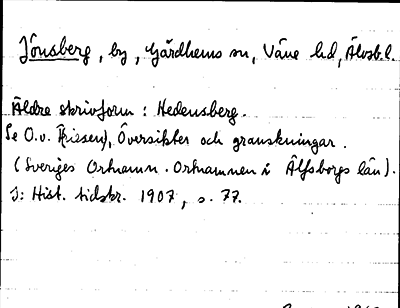 Jönsberg, by, Gärdhems sn, Väne hd, Älvsb. l.
Äldre skrivform: Hedensberg.
Se O.v. Friesen, Översikter och granskningar.
(Sveriges Ortnamn. Ortnamnen i Älfsborgs län).
I: Hist. tidskr. 1907, s. 77.